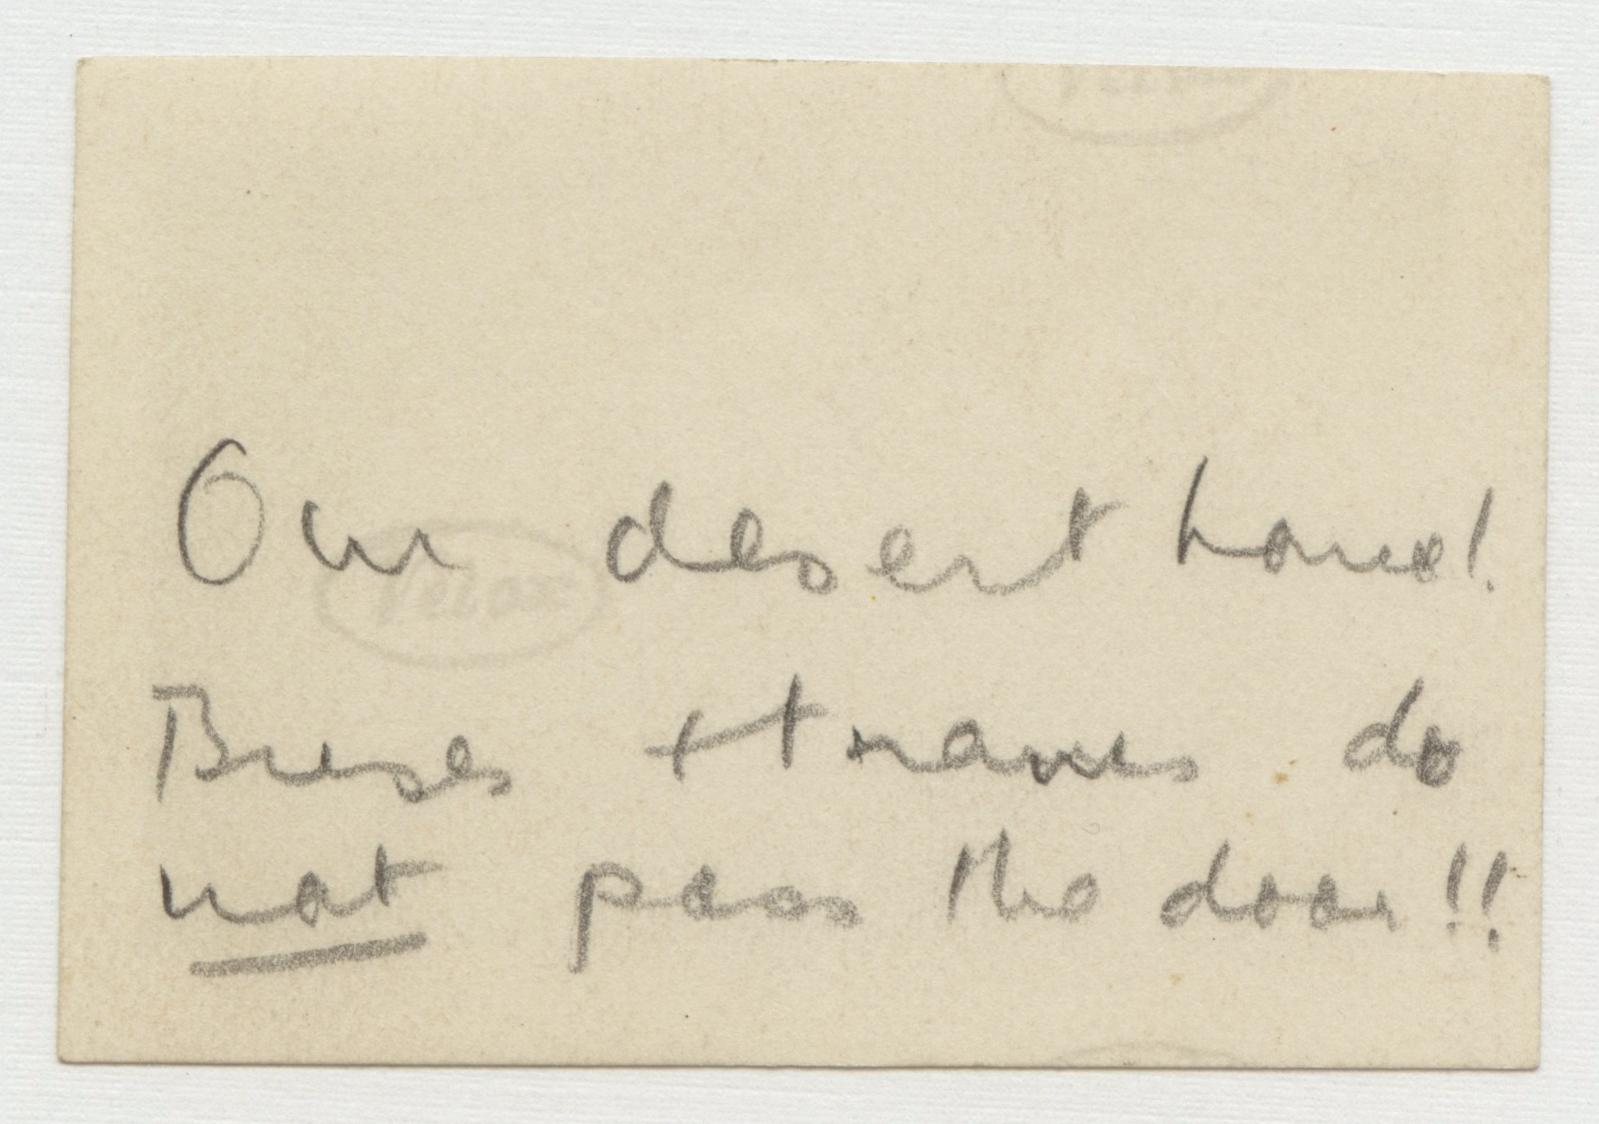 Our desert home!
Buses + trams do
not pass the door!!
Velox